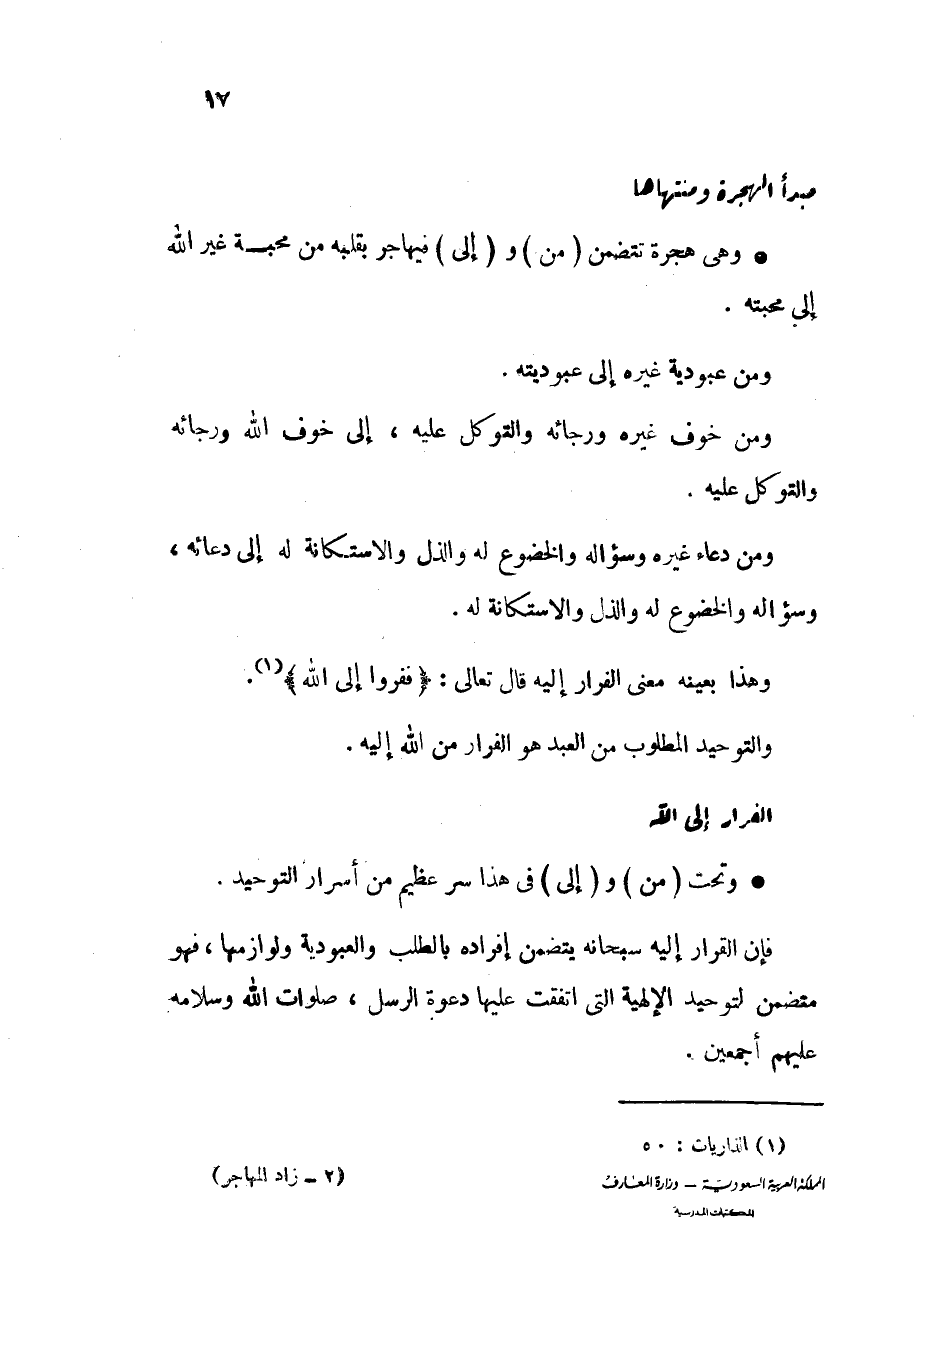 ١٧
مبدأ الهجرة ومنتهاها
• وهى هجرة تتضمن ( من ) و ( إلى ) فيهاجر بقلبه من محبــة غير الله
إلى محبته .
ومن عبودية غيره إلى عبوديته .
ومن خوف غيره ورجائه والتوكل عليه ، إلى خوف الله ورجائه
والتوكل عليه .
ومن دعاء غيره وسؤاله والخضوع له والذل والاستكانة له إلى دعائه ،
وسؤاله والخضوع له والذل والاستكانة له .
وهذا بعينه معنى الفرار إليه قال تعالى : ﴿ ففروا إلى الله ﴾(١).
والتوحيد المطلوب من العبد هو الفرار من الله إليه .
الفرار إلى الله
• وتحت ( من ) و ( إلى ) فى هذا سر عظيم من أسرار التوحيد .
فإن القرار إليه سبحانه يتضمن إفراده بالطلب والعبودية ولوازمها ، فهو
متضمن لتوحيد الإلهية التى اتفقت عليها دعوة الرسل ، صلوات الله وسلامه
عليهم أجمعين .
(١) الذاريات : ٥٠
(٢ – زاد المهاجر)
المملكة العربية السعودية – وزارة المعارف
المكتبات المدرسية